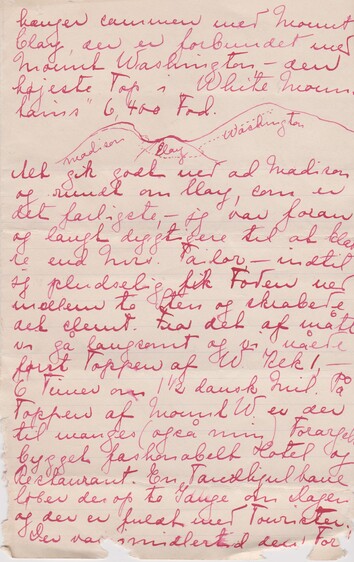 hænger sammen med Mount
Clay, der er forbundet med
Mount Washington – den
højeste Top i "White Moun-
tains" 6,400 Fod.
Madison
Clay
Washington
Det gik godt ned ad Madison
og rundt om Clay, som er
det farligste, – jeg var foran
og langt dygtigere til at kla-
re end Mrs. Tailor – indtil
jeg pludselig fik Foden ned
mellem to Sten og skrabede
det slemt. Fra det af måtte
vi gå langsomt og vi nåede
først Toppen af W. Kl. 1, –
6 Timer om 1½ dansk Mil. På
Toppen af Mount W. er der
til manges (også min) Forargelse
bygget fashionabelt Hotel og
Restaurant. En Tandhjulbane
løber derop to Gange om Dagen
og der er fuldt med Tourister.
Der var imidlertid den i For